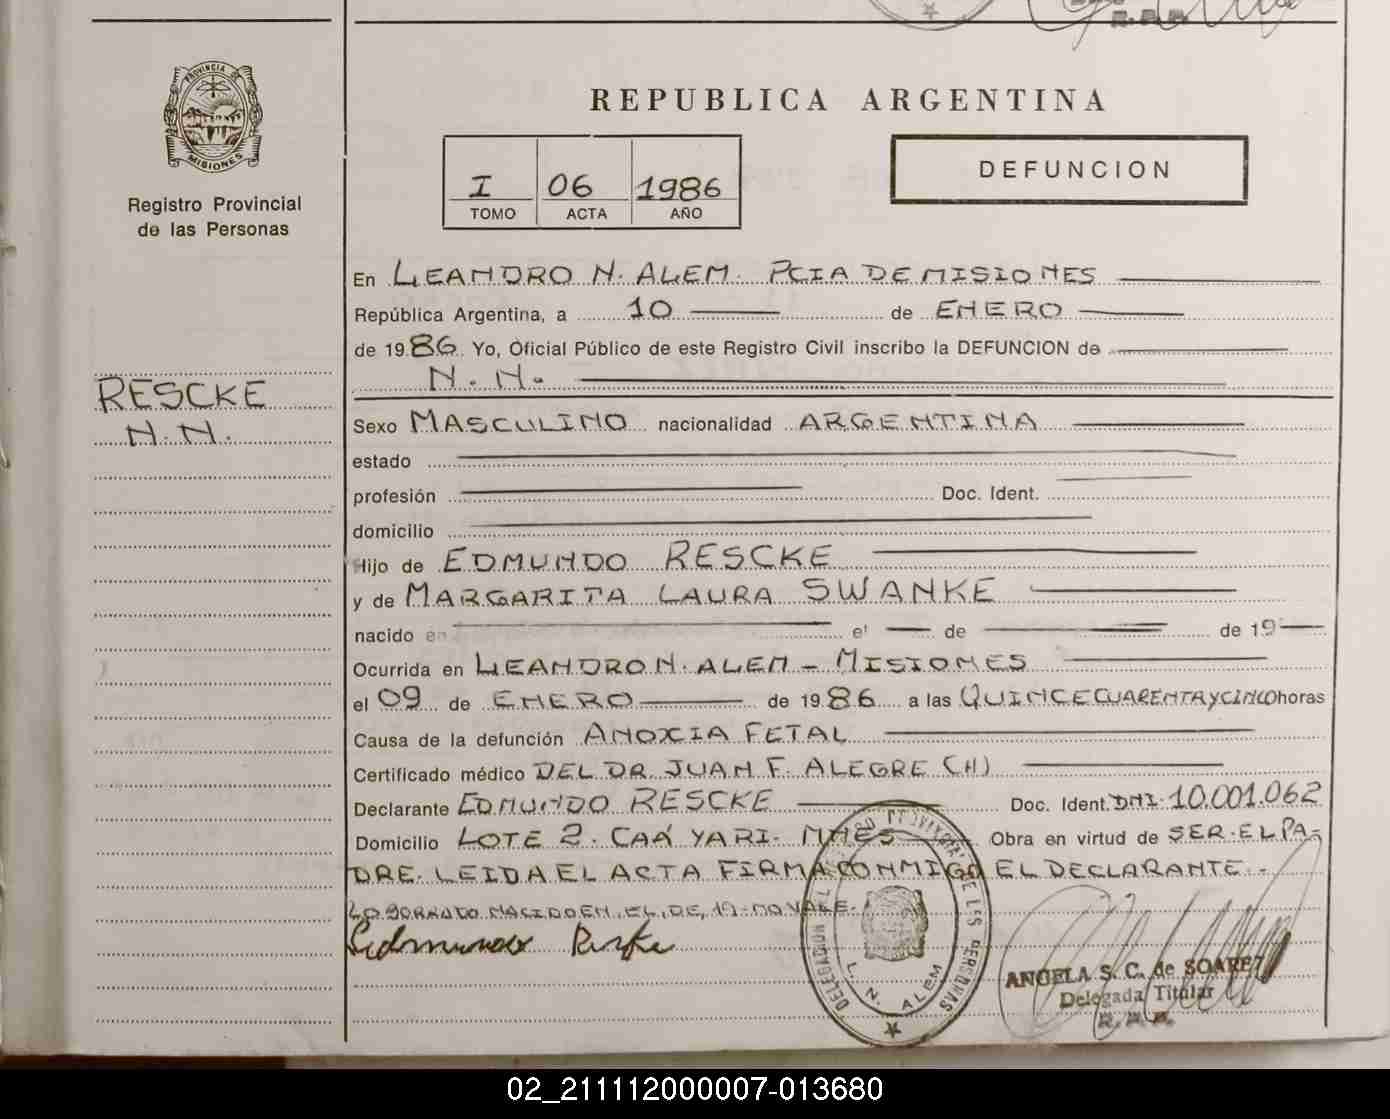 PROVINCIA DE
MISIONES
Registro Provincial
de las Personas
RESCKE
N.N.
REPUBLICA ARGENTINA
I 06 1986
TOMO ACTA AÑO
DEFUNCION
En LEANDRO N. ALEM. PCIA DE MISIONES
República Argentina, a 10 de ENERO
de 1986 Yo, Oficial Público de este Registro Civil inscribo la DEFUNCION de
N. N.
Sexo MASCULINO nacionalidad ARGENTINA
estado
profesión Doc. Ident.
domicilio
Hijo de EDMUNDO RESCKE
y de MARGARITA LAURA SWANKE
nacido en el de de 19
Ocurrida en LEANDRO N. ALEM - MISIONES
el 09 de ENERO de 1986 a las QUINCE CUARENTA Y CINCO horas
Causa de la defunción ANOXIA FETAL
Certificado médico DEL DR. JUAN F. ALEGRE (H)
Declarante EDMUNDO RESCKE Doc. Ident. DNI. 10.001.062
Domicilio LOTE 2. CAÁ YARI. MNES Obra en virtud de SER. EL PA-
DRE. LEIDA EL ACTA FIRMA CONMIGO EL DECLARANTE.-
LO BORRADO NACIDO EN, EL, DE, 19- NO VALE.
Edmundo Reske
DELEGACION DE LAS PERSONAS
L. N. ALEM
ANGELA S. C. de SOAREZ
Delegada Titular
R.P.P.
02_211112000007-013680